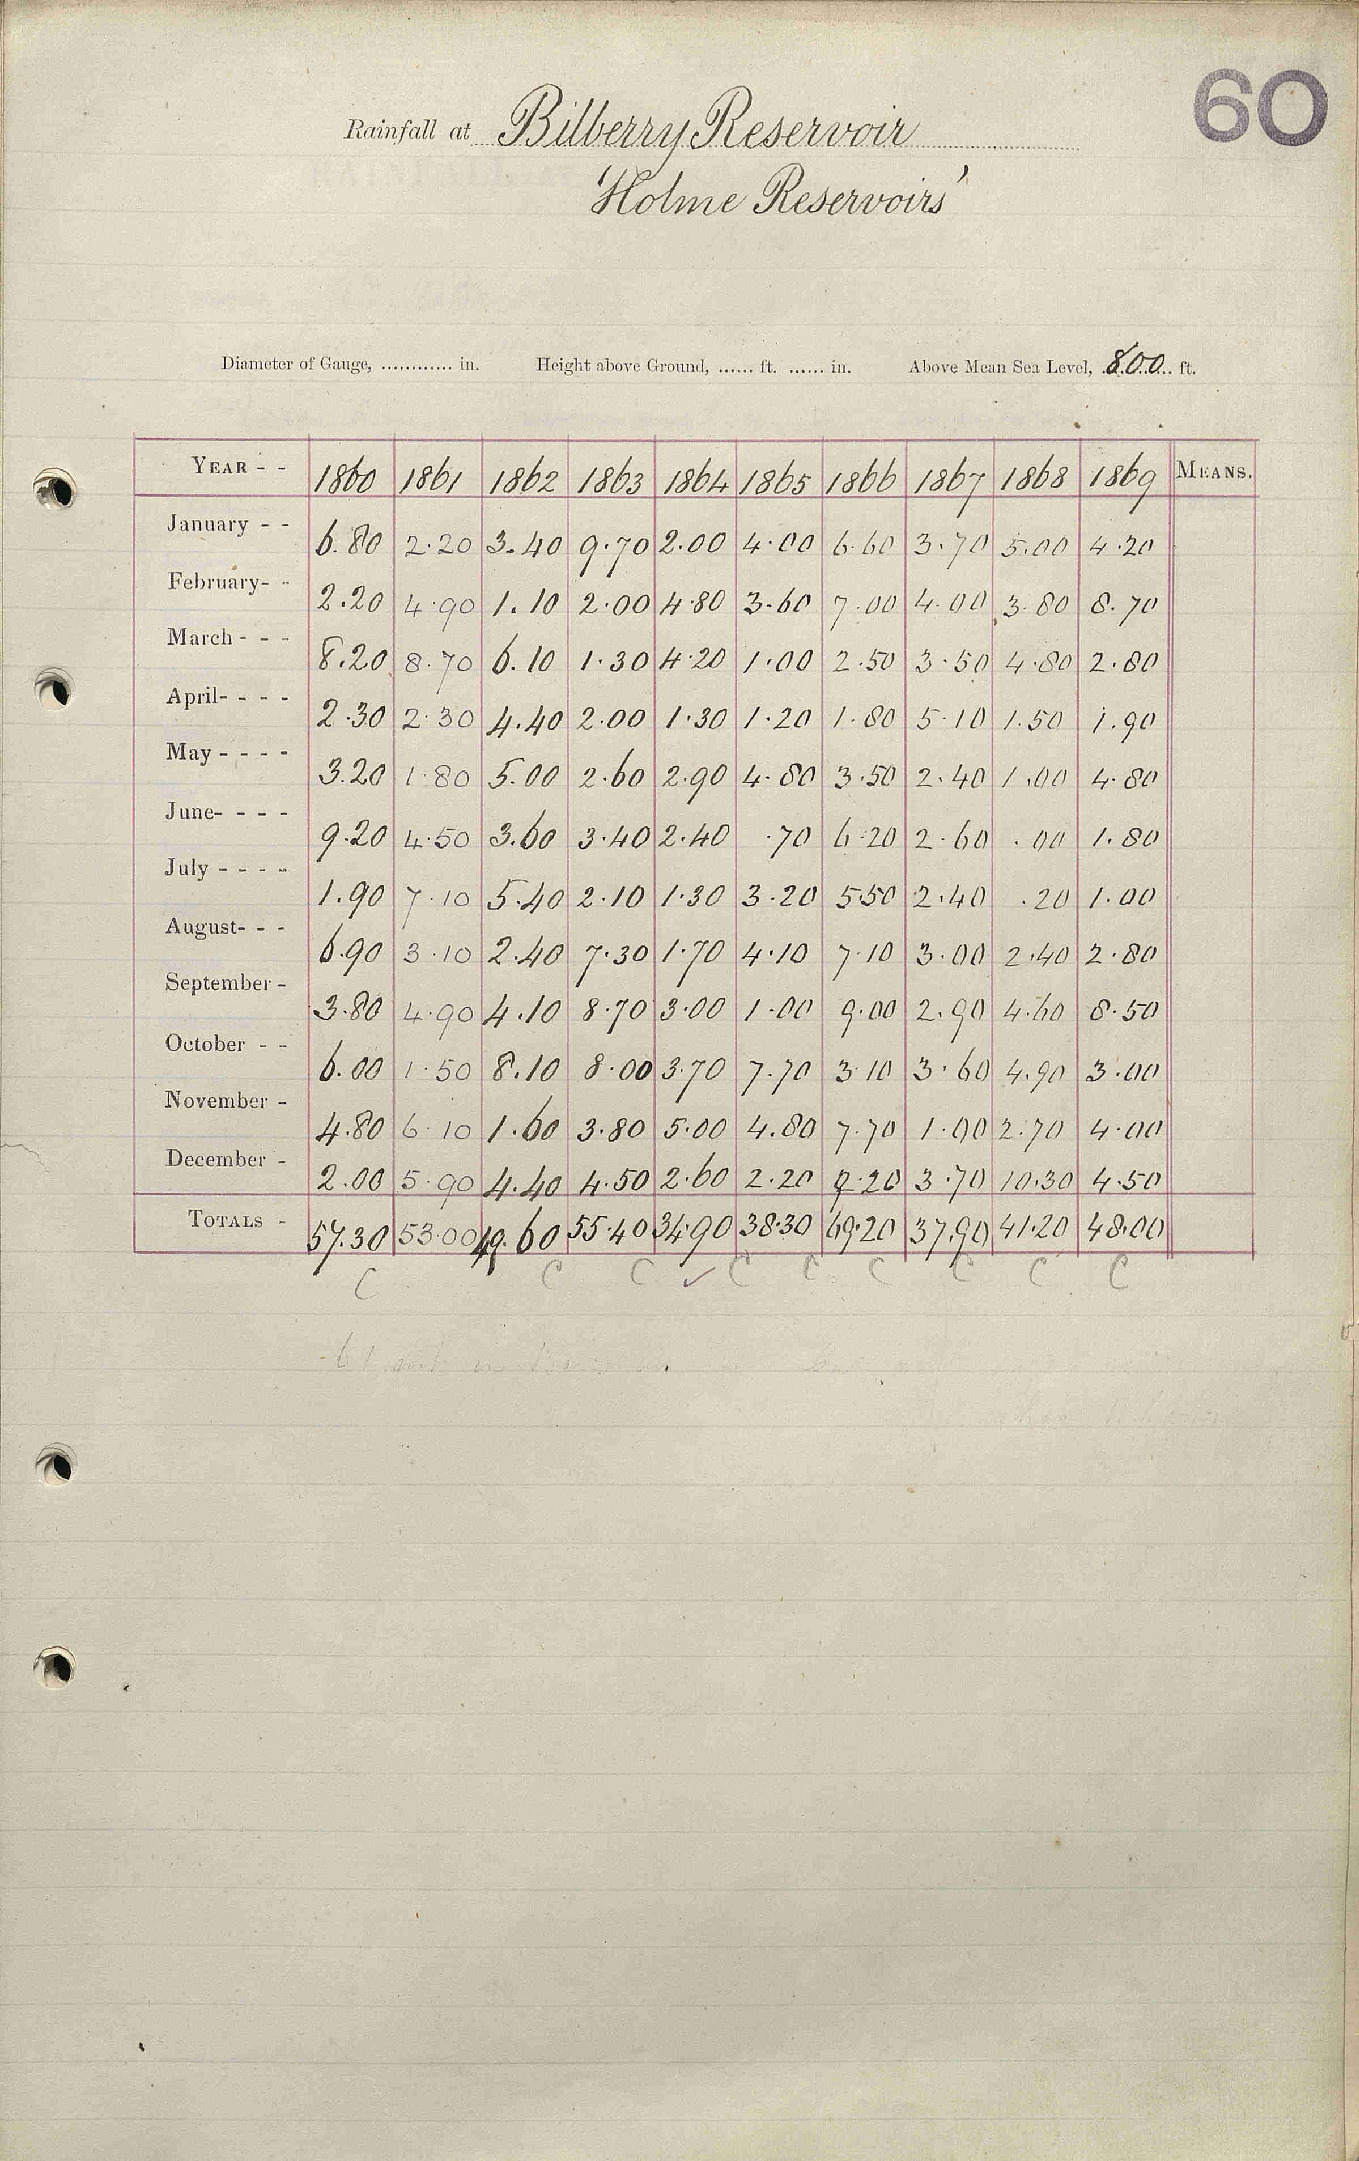 60
Rainfall at Bilberry Reservoir
'Holme Reservoirs'
Diameter of Gauge, ............ in. Height above Ground, ...... ft. ...... in. Above Mean Sea Level, 800 ft.
YEAR - - 1860 1861 1862 1863 1864 1865 1866 1867 1868 1869 MEANS.
January - - 6.80 2.20 3.40 9.70 2.00 4.00 6.60 3.70 5.00 4.20
February- - 2.20 4.90 1.10 2.00 4.80 3.60 7.00 4.00 3.80 8.70
March - - - 8.20 8.70 6.10 1.30 4.20 1.00 2.50 3.50 4.80 2.80
April- - - - 2.30 2.30 4.40 2.00 1.30 1.20 1.80 5.10 1.50 1.90
May - - - - 3.20 1.80 5.00 2.60 2.90 4.80 3.50 2.40 1.00 4.80
June- - - - 9.20 4.50 3.60 3.40 2.40 .70 6.20 2.60 .00 1.80
July - - - - 1.90 7.10 5.40 2.10 1.30 3.20 550 2.40 .20 1.00
August- - - 6.90 3.10 2.40 7.30 1.70 4.10 7.10 3.00 2.40 2.80
September - 3.80 4.90 4.10 8.70 3.00 1.00 9.00 2.90 4.60 8.50
October - - 6.00 1.50 8.10 8.00 3.70 7.70 3.10 3.60 4.90 3.00
November - 4.80 6.10 1.60 3.80 5.00 4.80 7.70 1.00 2.70 4.00
December - 2.00 5.90 4.40 4.50 2.60 2.20 9.20 3.70 10.30 4.50
TOTALS - 57.30 53.00 49.60 55.40 34.90 38.30 69.20 37.90 41.20 48.00
C C C ✓ C C C C C C